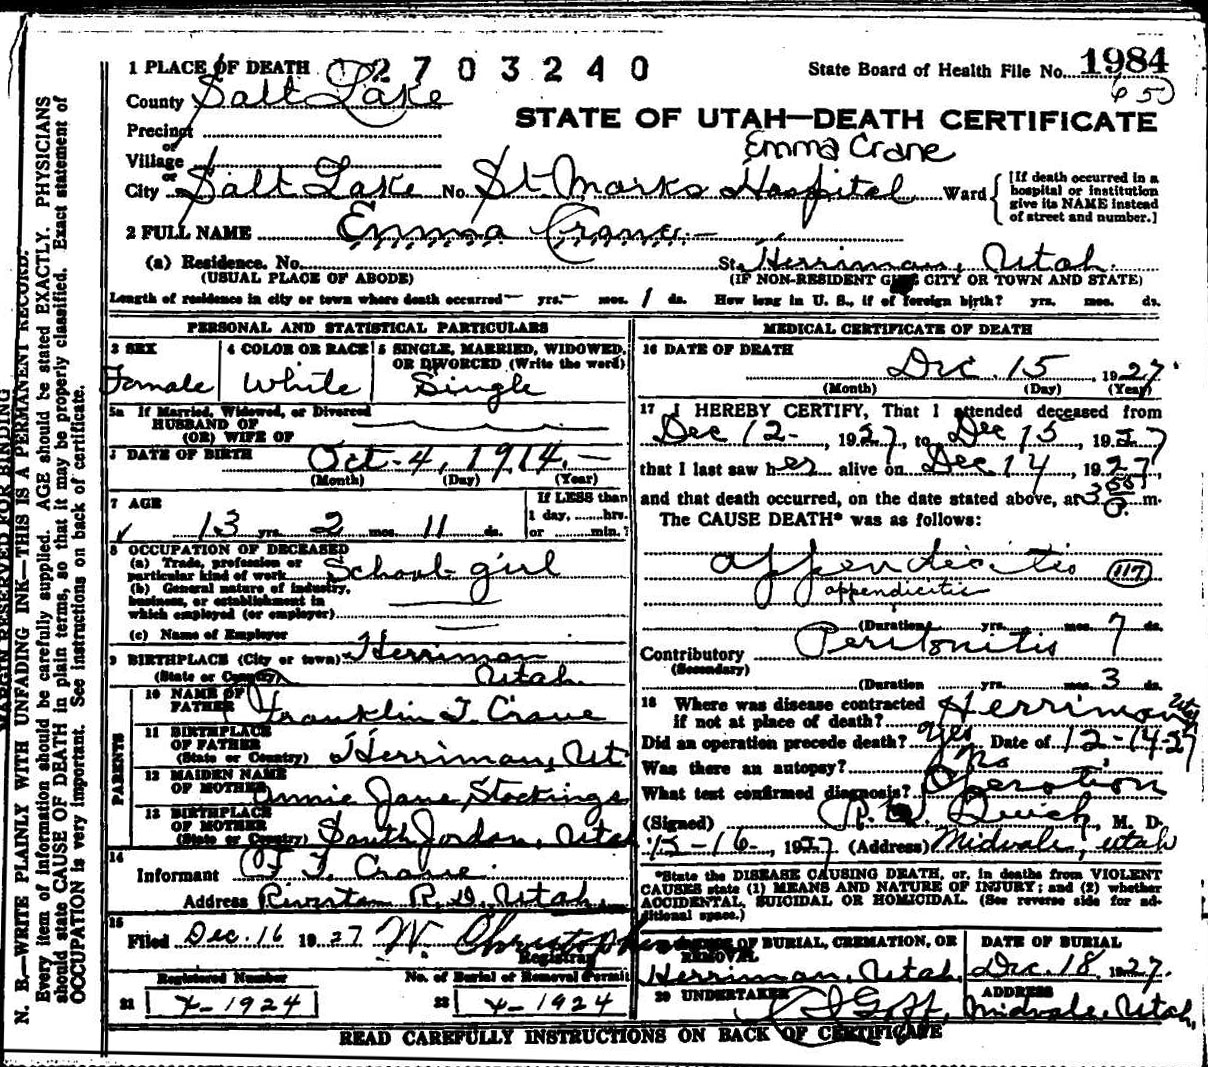 1 PLACE OF DEATH 2703240 State Board of Health File No. 1984
County Salt Lake 650
STATE OF UTAH—DEATH CERTIFICATE
Precinct
or
Village Emma Crane
or
City Salt Lake No. St Marks Hospital Ward [If death occurred in a hospital or institution give its NAME instead of street and number.]
2 FULL NAME Emma Crane
(a) Residence. No. St. Herriman, Utah.
(USUAL PLACE OF ABODE) (IF NON-RESIDENT GIVE CITY OR TOWN AND STATE)
Length of residence in city or town where death occurred — yrs. — mos. 1 ds. How long in U. S., if of foreign birth? yrs. mos. ds.
PERSONAL AND STATISTICAL PARTICULARS
3 SEX 4 COLOR OR RACE 5 SINGLE, MARRIED, WIDOWED, OR DIVORCED (Write the word)
Female White Single
5a If Married, Widowed, or Divorced
HUSBAND OF
(OR) WIFE OF
DATE OF BIRTH Oct-4, 1914.—
(Month) (Day) (Year)
7 AGE If LESS than
1 day, hrs.
13 yrs. 2 mos. 11 ds. or min.?
8 OCCUPATION OF DECEASED
(a) Trade, profession or
particular kind of work School girl
(b) General nature of industry,
business, or establishment in
which employed (or employer)
(c) Name of Employer
9 BIRTHPLACE (City or town) Herriman
(State or Country) Utah.
PARENTS
10 NAME OF
FATHER Franklin T. Crane
11 BIRTHPLACE
OF FATHER
(State or Country) Herriman, Ut
12 MAIDEN NAME
OF MOTHER Annie Jane Stockings
13 BIRTHPLACE
OF MOTHER
(State or Country) South Jordan, Utah
14
Informant F T. Crane
Address Riverton R.D. Utah.
15
Filed Dec. 16 1927 W. Christopherson
Registrar
Registered Number No. of Burial or Removal Permit
21 X-1924 22 X-1924
MEDICAL CERTIFICATE OF DEATH
16 DATE OF DEATH
Dec. 15, 1927.
(Month) (Day) (Year)
17 I HEREBY CERTIFY, That I attended deceased from
Dec 12-, 1927, to Dec 15, 1927
that I last saw her alive on Dec 14, 1927,
and that death occurred, on the date stated above, at 3 55 P. m.
The CAUSE DEATH* was as follows:
Appendicitis 117
appendicitis
(Duration yrs. mos. 7 ds.
Contributory Peritonitis
(Secondary)
(Duration yrs. mos. 3 ds.
18 Where was disease contracted
if not at place of death? Herriman Utah
Did an operation precede death? Yes Date of 12-14-27
Was there an autopsy? No
What test confirmed diagnosis? Operation
(Signed) M. D.
12-16, 1927 (Address) Midvale, Utah
*State the DISEASE CAUSING DEATH, or, in deaths from VIOLENT
CAUSES state (1) MEANS AND NATURE OF INJURY; and (2) whether
ACCIDENTAL, SUICIDAL OR HOMICIDAL. (See reverse side for ad-
ditional space.)
OF BURIAL, CREMATION, OR DATE OF BURIAL
REMOVAL
Herriman, Utah Dec. 18 1927.
20 UNDERTAKER ADDRESS
Goff, Midvale, Utah,
READ CAREFULLY INSTRUCTIONS ON BACK OF CERTIFICATE
MARGIN RESERVED FOR BINDING
N. B.—WRITE PLAINLY WITH UNFADING INK—THIS IS A PERMANENT RECORD.
Every item of information should be carefully supplied. AGE should be stated EXACTLY. PHYSICIANS
should state CAUSE OF DEATH in plain terms, so that it may be properly classified. Exact statement of
OCCUPATION is very important. See instructions on back of certificate.